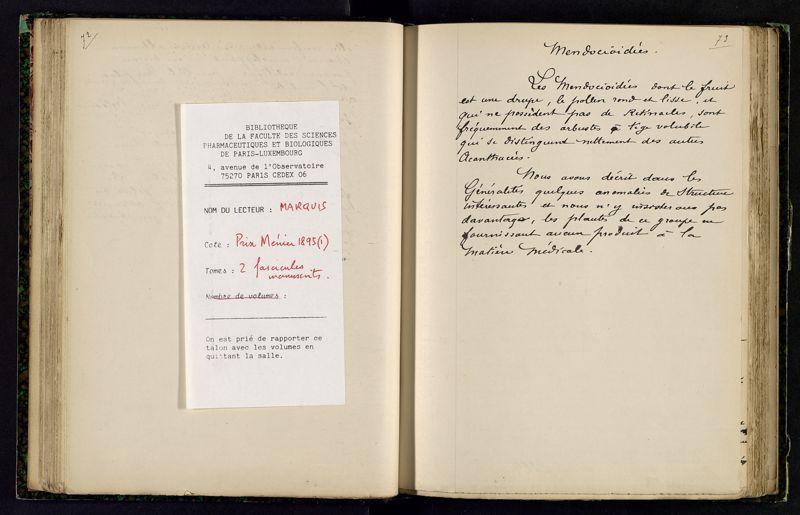 72
BIBLIOTHEQUE
DE LA FACULTE DES SCIENCES
PHARMACEUTIQUES ET BIOLOGIQUES
DE PARIS-LUXEMBOURG
4, avenue de l'Observatoire
75270 PARIS CEDEX 06
NOM DU LECTEUR : MARQUIS
Cote : Prix Ménier 1895 (1)
Tomes : 2 fascicules
manuscrits.
Nombre de volumes :
On est prié de rapporter ce
talon avec les volumes en
quittant la salle.
73
Mendocioidiées.
Les Mendocioidiées dont le fruit
est une drupe, le pollen rond et lisse, et
qui ne possèdent pas de Rétinacles, sont
fréquemment des arbustes à tige volubile
qui se distinguent nettement des autres
Acanthacées.
Nous avons décrit dans les
Généralités quelques anomalies de structure
intéressantes et nous n'y insisterons pas
davantage, les plantes de ce groupe ne
fournissant aucun produit à la
matière médicale.